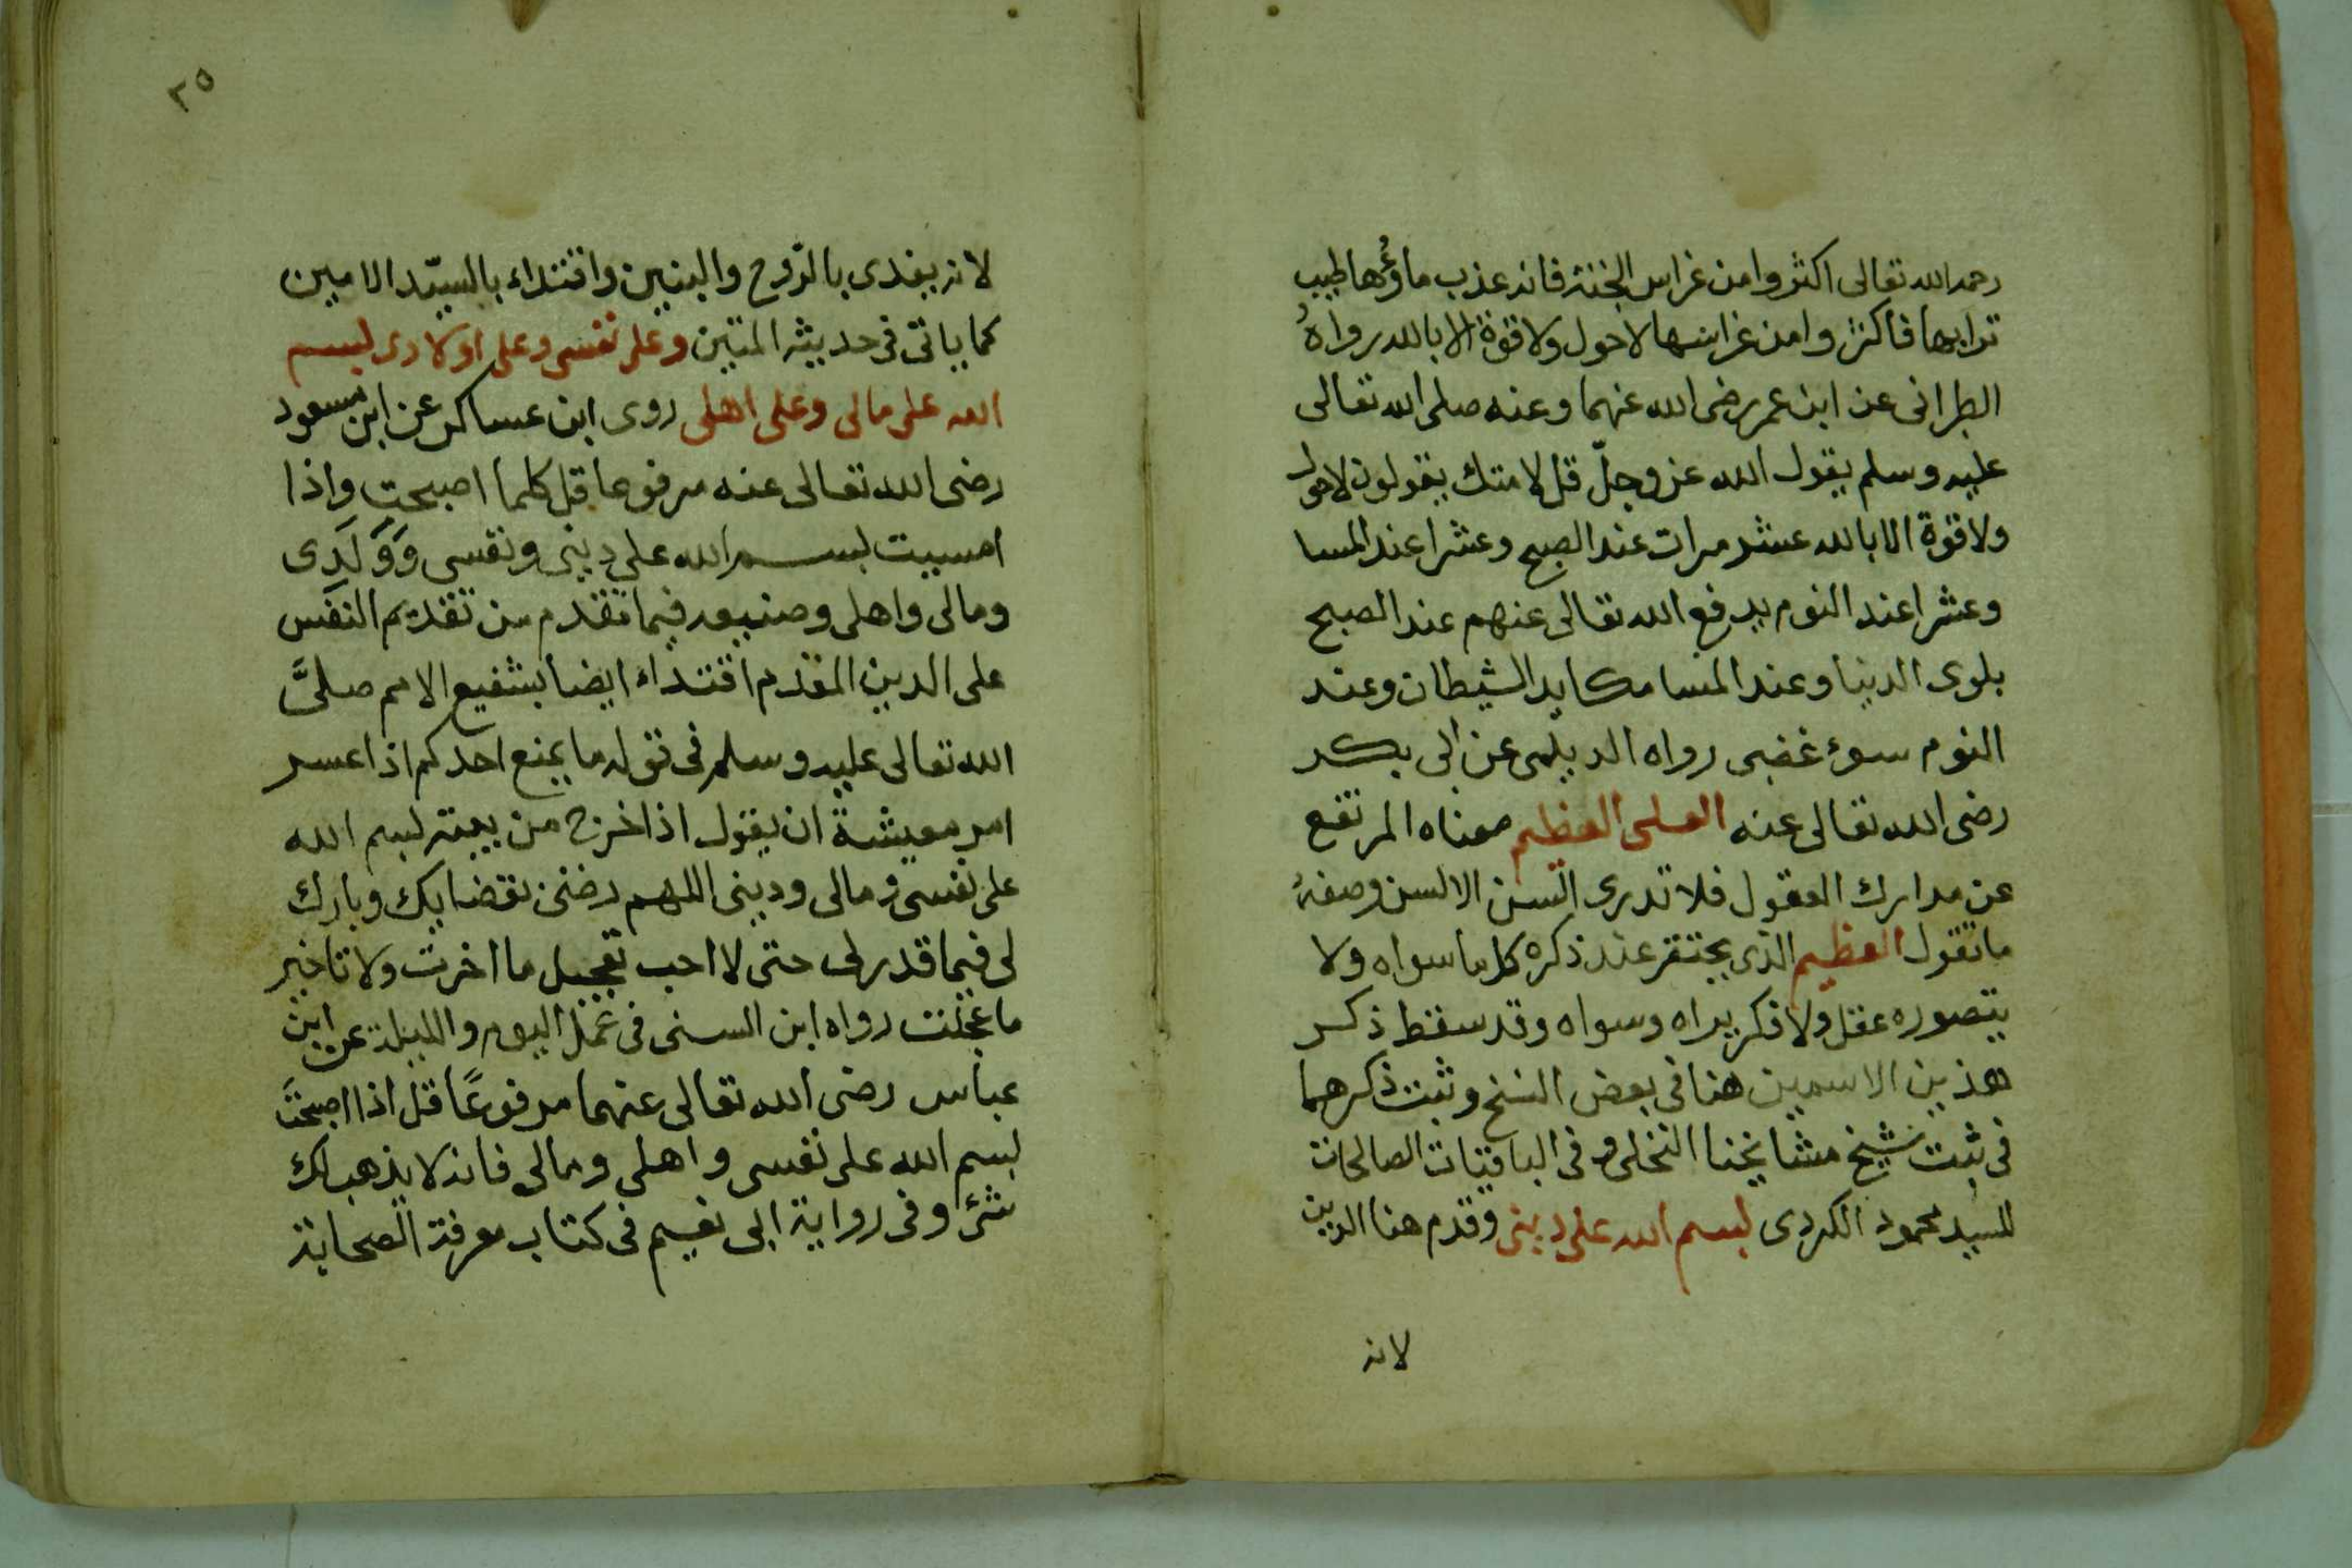 رحمه الله تعالى اكثروا من غراس الجنة فانه عذب ماؤها طيب
ترابها فاكثروا من غراسها لا حول ولا قوة الا بالله رواهُ
الطبرانى عن ابن عمر رضى الله عنهما وعنه صلى الله تعالى
عليه وسلم يقول الله عز وجلّ قل لامتك يقولون لا حول
ولا قوة الا بالله عشر مرات عند الصبح وعشرا عند المسا
وعشرا عند النوم يدفع الله تعالى عنهم عند الصبح
بلوى الدنيا وعند المسا مكايد الشيطان وعند
النوم سوء غضبى رواه الديلمى عن ابى بكر
رضى الله تعالى عنه العلى العظيم معناه المرتفع
عن مدارك العقول فلا تدرى السن الالسن وصفهُ
ما تقول العظيم الذى يحتقر عند ذكره كل ما سواه ولا
يتصوره عقل ولا فكر يراه وسواه وقد سقط ذكر
هذين الاسمين هنا فى بعض النسخ وثبت ذكرهما
فى ثبت شيخ مشايخنا النخلى وفى الباقيات الصالحات
للسيد محمود الكردى بسم الله على دينى وقدم هنا الدين
لانه
٢٥
لانه يفدى بالرّوح والبنين واقتداء بالسيّد الامين
كما ياتى فى حديثه المتين وعلى نفسى وعلى اولادى بسم
الله على مالى وعلى اهلى روى ابن عساكر عن ابن مسعود
رضى الله تعالى عنه مرفوعا قل كلما اصبحت واذا
امسيت بسم الله على دينى ونفسى وَوَلَدِى
ومالى واهلى وصنيعه فيما تقدم من تقديم النفس
على الدين المقدم اقتداء ايضا بشفيع الامم صلىَّ
الله تعالى عليه وسلم فى قوله ما يمنع احدكم اذا عسر
امر معيشة ان يقول اذا خرج من بيته بسم الله
على نفسى ومالى ودينى اللهم رضنى بقضايك وبارك
لى فيما قدر لى حتى لا احب تعجيل ما اخرت ولا تاخير
ما عجلت رواه ابن السنى فى عمل اليوم والليلة عن ابن
عباس رضى الله تعالى عنهما مرفوعًا قل اذا اصبحتَ
بسم الله على نفسى واهلى ومالى فانه لا يذهب لك
شئ وفى رواية ابى نعيم فى كتاب معرفة الصحابة